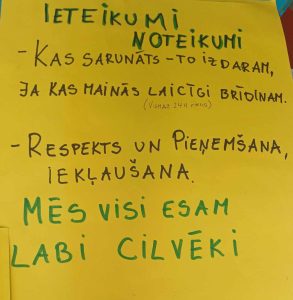 IETEIKUMI
NOTEIKUMI
- KAS SARUNĀTS - TO IZDARAM,
JA KAS MAINĀS LAICĪGI BRĪDINAM.
(VISMAZ 24H
- RESPEKTS UN PIEŅEMŠANA,
IEKĻAUŠANA.
MĒS VISI ESAM
LABI CILVĒKI